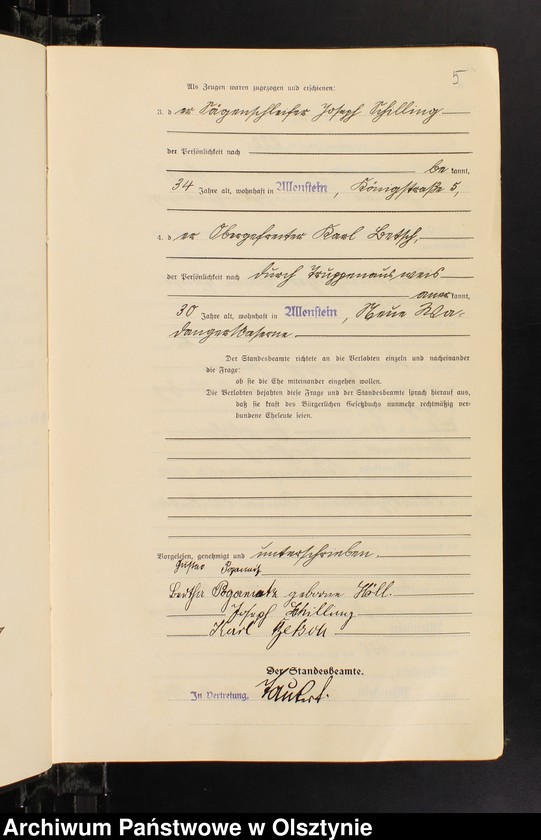 5
Als Zeugen waren zugezogen und erschienen:
3. der Sägenschleifer Joseph Schilling
der Persönlichkeit nach
bekannt,
34 Jahre alt, wohnhaft in Allenstein, Königstraße 5,
4. der Obergefreiter Karl Betsch,
der Persönlichkeit nach durch Truppenausweis
anerkannt,
30 Jahre alt, wohnhaft in Allenstein, Neue Wa-
dangerkaserne.
Der Standesbeamte richtete an die Verlobten einzeln und nacheinander
die Frage:
ob sie die Ehe miteinander eingehen wollen.
Die Verlobten bejahten diese Frage und der Standesbeamte sprach hierauf aus,
daß sie kraft des Bürgerlichen Gesetzbuchs nunmehr rechtmäßig ver-
bundene Eheleute seien.
Vorgelesen, genehmigt und unterschrieben.
Gustav
Bertha geborne Höll.
Joseph Schilling
Karl Betsch
Der Standesbeamte.
In Vertretung.
Archiwum Państwowe w Olsztynie